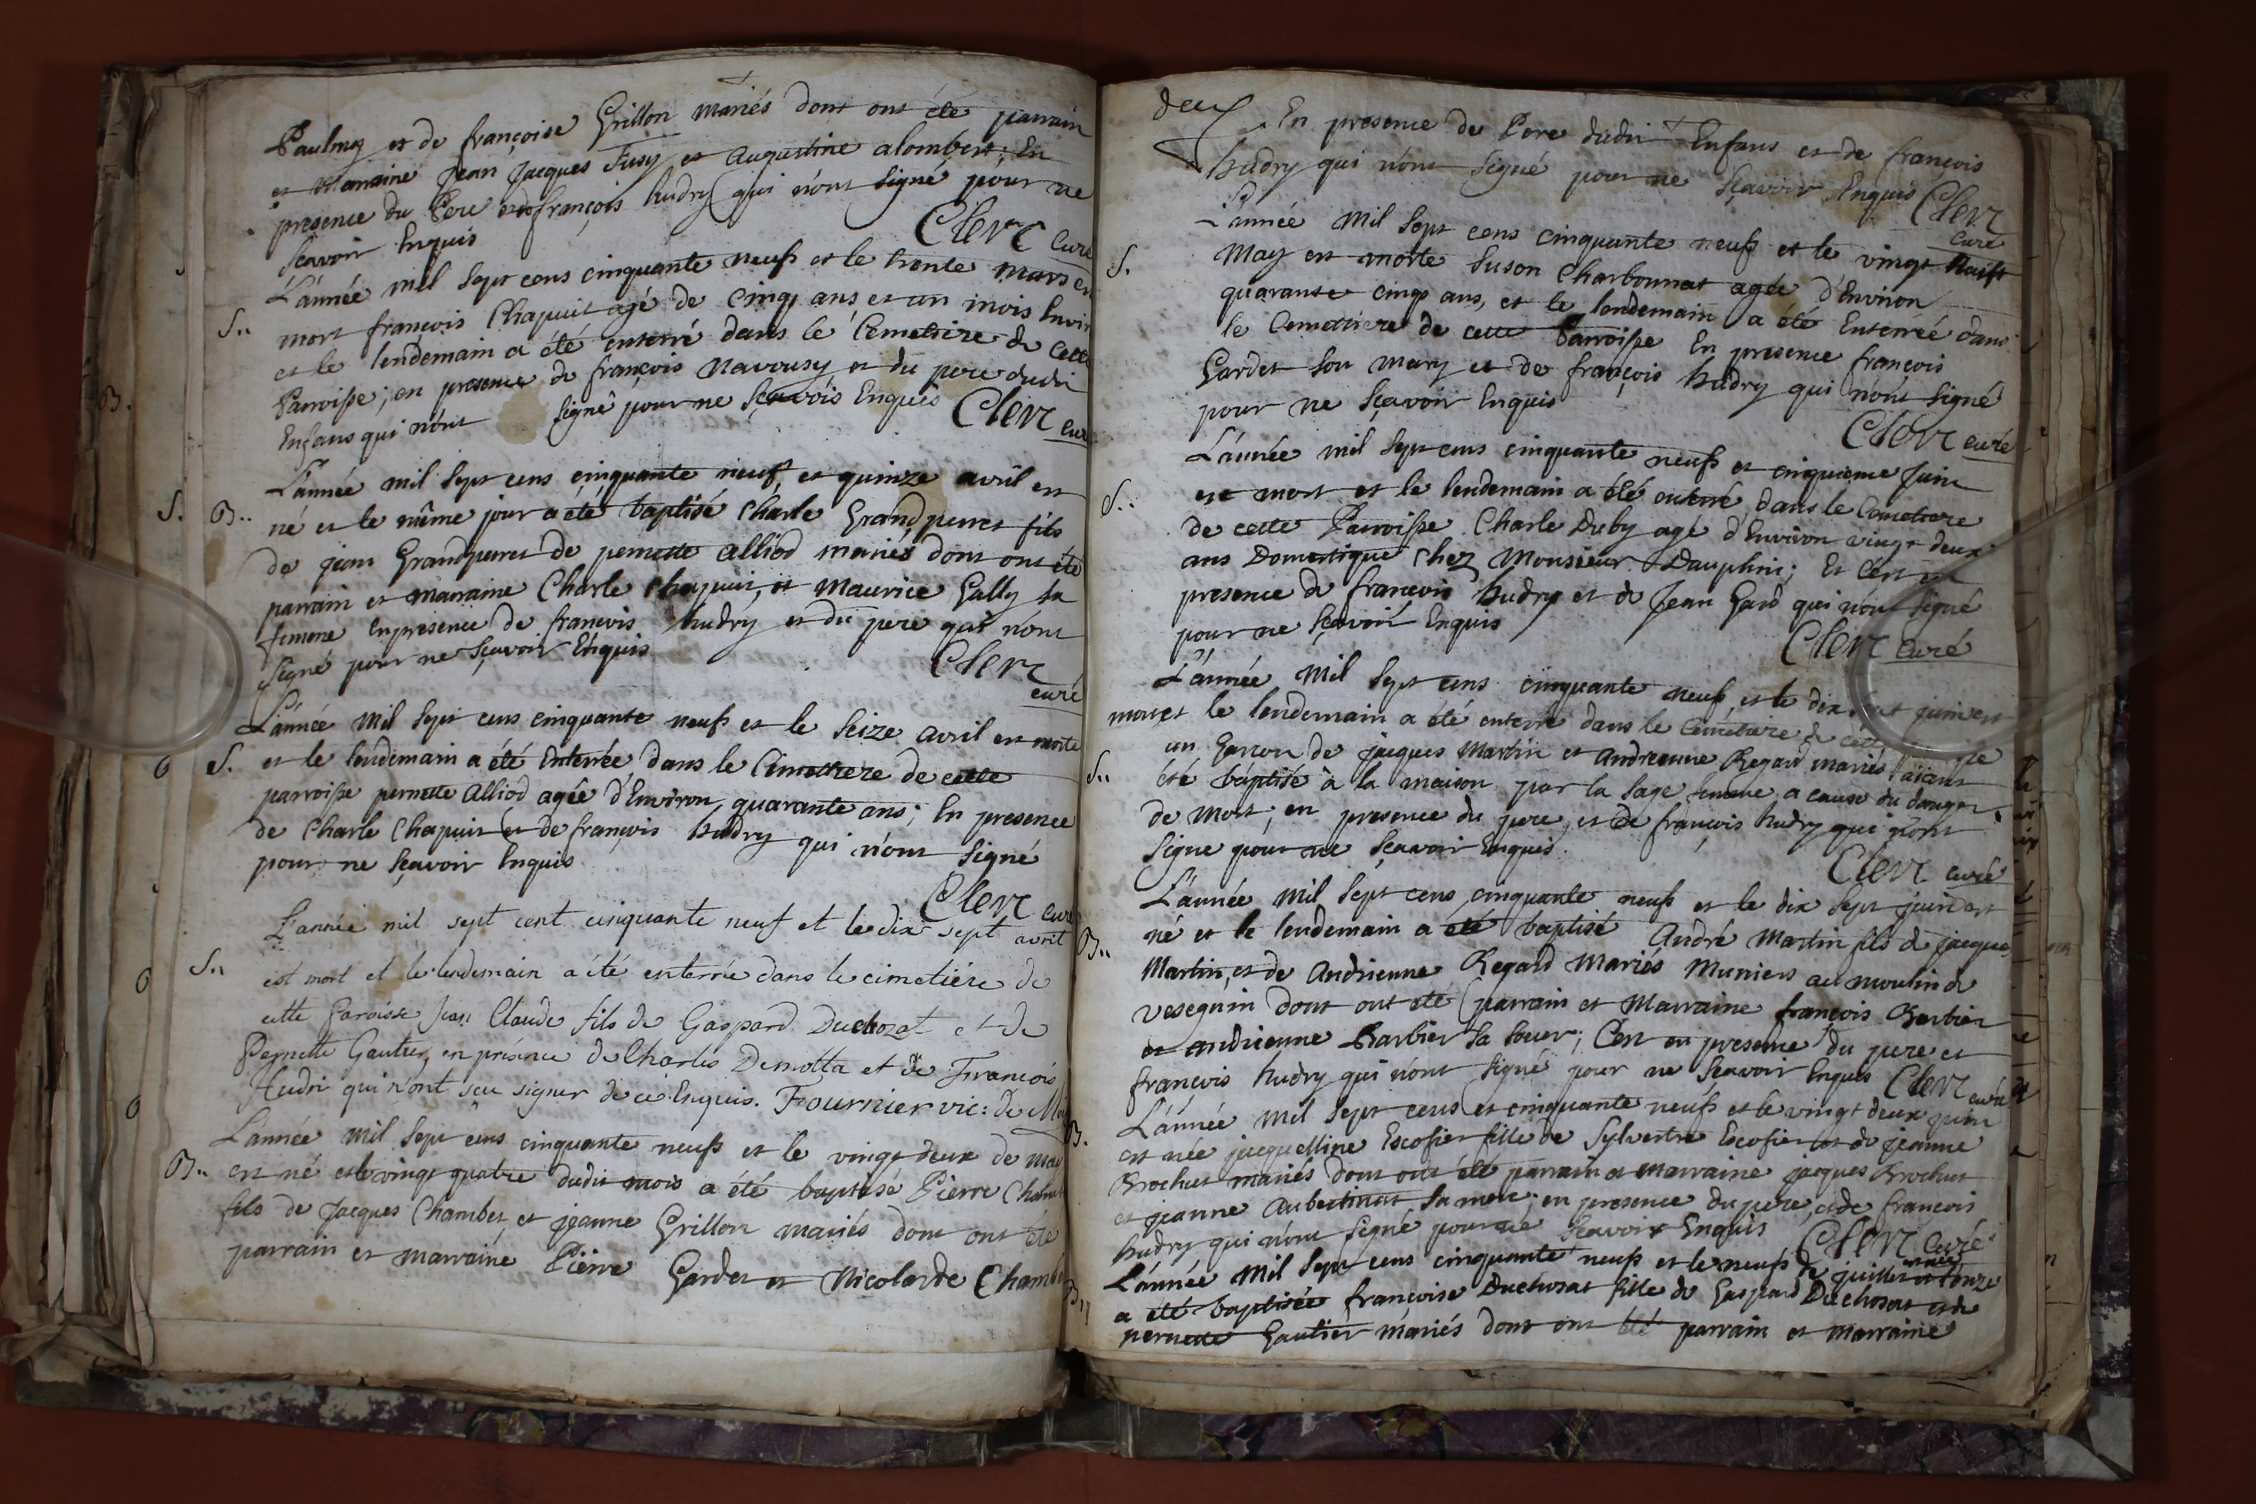 Paulmy et de françoise Grillon mariés dont ont été parrain
et Maraine Jean Jacques Fusy et augustine alombert; En
presence du Pere et de françois hudry qui n'ont signé pour ne
scavoir Enquis Clerc Curé
L'année mil sept cens cinquante neuf et le trente mars est
S.. mort françois Chapuit agé de cinq ans et un mois Environ
et le lendemain a été enterré dans le Cemetiere de cette
Parroisse; en presence de françois Navousy et du pere dudit
Enfans qui n'ont signé pour ne sçavoir Enquis Clerc curé
L'année mil sept cens cinquante neuf, et quinze avril est
B.. né et le même jour a été baptisé Charle Grandperret fils
de jean Grandperret de pernette alliod mariés dont ont été
parrain et marraine Charle Chapuit, et Maurice Gally sa
femme en presence de francois hudry et du pere qui n'ont
signé pour ne sçavoir Enquis Clerc
curé
L'année Mil sept cens cinquante neuf et le seize avril est morte
S. et le lendemain a été Enterrée dans le Cimettiere de cette
parroisse pernette alliod agée d'Environ quarante ans; En presence
de Charle Chapuit et de françois hudry qui n'ont signé
pour ne sçavoir Enquis
Clerc curé
L'année mil sept cent cinquante neuf et le dix sept avril
S.. est mort et le lendemain a été enterrée dans le cimetiére de
cette Paroisse Jean Claude fils de Gaspard Duchozat et de
Pernette Gautier, en présence de Charles Demotta et de François
Hudri qui n'ont sçu signer de ce Enquis. Fournier vic: de
L'année Mil sept cens cinquante neuf et le vingt deux de may
B.. est né et le vingt quatre dudit mois a été baptisé Pierre Chambet
fils de Jacques Chambet et jeanne Grillon mariés dont ont été
parrain et marraine Pierre Gardet et Nicolarde Chambet
deux
En presence de Pere dudit Enfans et de françois
hudry qui n'ont signé pour ne sçavoir Enquis Clerc
curé
L'année Mil sept cens cinquante neuf et le vingt huist
S. May est morte Suson Charbonnat agée d'Environ
quarante cinq ans, et le lendemain a été Enterrée dans
le Cemettiere de cette Parroisse En presence françois
Gardet son mary et de françois hudry qui n'ont signé
pour ne sçavoir Enquis Clerc curé
L'année mil sept cens cinquante neuf et cinquieme Juin
S.. est mort et le lendemain a été enterré dans le Cemetiere
de cette Parroisse Charle Duby agé d'Environ vingt deux
ans Domestique Chez Monsieur Dauphin; Et c'est en
presence de francois hudry et de Jean Gard qui n'ont signé
pour ne sçavoir Enquis
Clerc curé
L'année Mil sept cens cinquante neuf, et le dix juin est
mort et le lendemain a été enterré dans le Cemetiere de cette
un Garron de jacques Martin et andrienne Regard mariés aiant
S.. été baptisé à la maison par la sage femme a cause du danger
de Mort; en presence du pere, et de françois hudry qui n'ont
signe pour ne sçavoir Enquis.
Clerc curé
L'année Mil sept cens cinquante neuf et le dix sept juin est
B.. né et le lendemain a été baptisé André Martin fils de jacque
Martin, et de andrienne Regard Mariés Muniers au moulin de
vesegnin dont ont été parrain et Marraine françois Barbier
et andrienne Barbier sa soeur; C'est en presence du pere et
françois hudry qui n'ont signé pour ne sçavoir Enquis Clerc curé
L'année Mil sept cens et cinquante neuf et le vingt deux juin
B. est née jacquelline Escofier fille de Sylvestre Escofier et de jeanne
Brochut mariés dont ont été parrain et marraine jacques Brochut
et jeanne Aubertinat sa mere; en presence du pere, et de francois
hudry qui n'ont signé pour ne sçavoir Enquis Clerc Curé
L'année Mil sept cens cinquante neuf et le neuf de juillet est née et l'onze
B.. a été baptisée françoise Duchosat fille de Gaspard Duchosat et de
pernette Gautier mariés dont ont été parrain et marraine